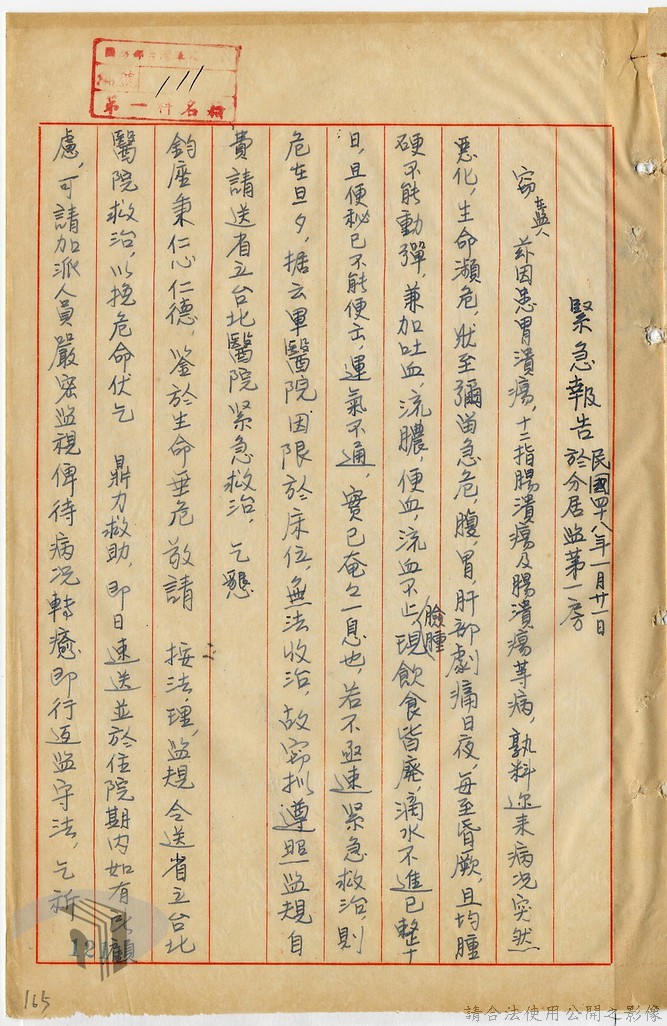 111
第一 件名
緊急報告 民國四十八年一月廿一日
於分居监第一房
窃在监人 茲因患胃潰瘍,十二指腸潰瘍及腸潰瘍等病,孰料迩来病况突然
惡化,生命瀕危,狀至彌留急危,腹,胃,肝部劇痛日夜,每至昏厥,且均腫
硬不能動彈,兼加吐血,流膿,便血,流血不止,臉腫現飲食皆廢,滴水不進已整十
日,且便秘已不能便出,運氣不通,實已奄々一息也,若不亟速緊急救治,則
危在旦夕,据云軍醫院因限於床位,無法收治,故窃拟遵照监規自
費請送省立台北醫院緊急救治,乞懇
鈞座秉仁心仁德,鉴於生命垂危敬請 按法,理,监規令送省立台北
醫院救治,以挽危命伏乞 鼎力救助,即日速送並於住院期內如有所顧
慮,可請加派人員嚴密监視俾待病况轉癒即行返监守法,乞祈
121
165
請合法使用公開之影像